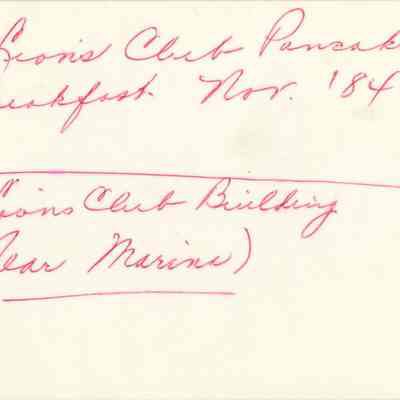 Lions Club Pancak
eakfast Nov. '84
Lions Club Building
Near Marina)